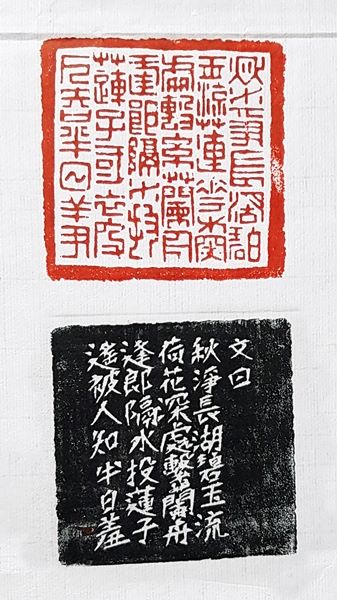 秋淨長湖碧
玉流花深
處繫蘭舟
逢郎隔水投
蓮子被
人知半日羞
文曰
秋淨長湖碧玉流
荷花深處繫蘭舟
逢郎隔水投蓮子
遙被人知半日羞